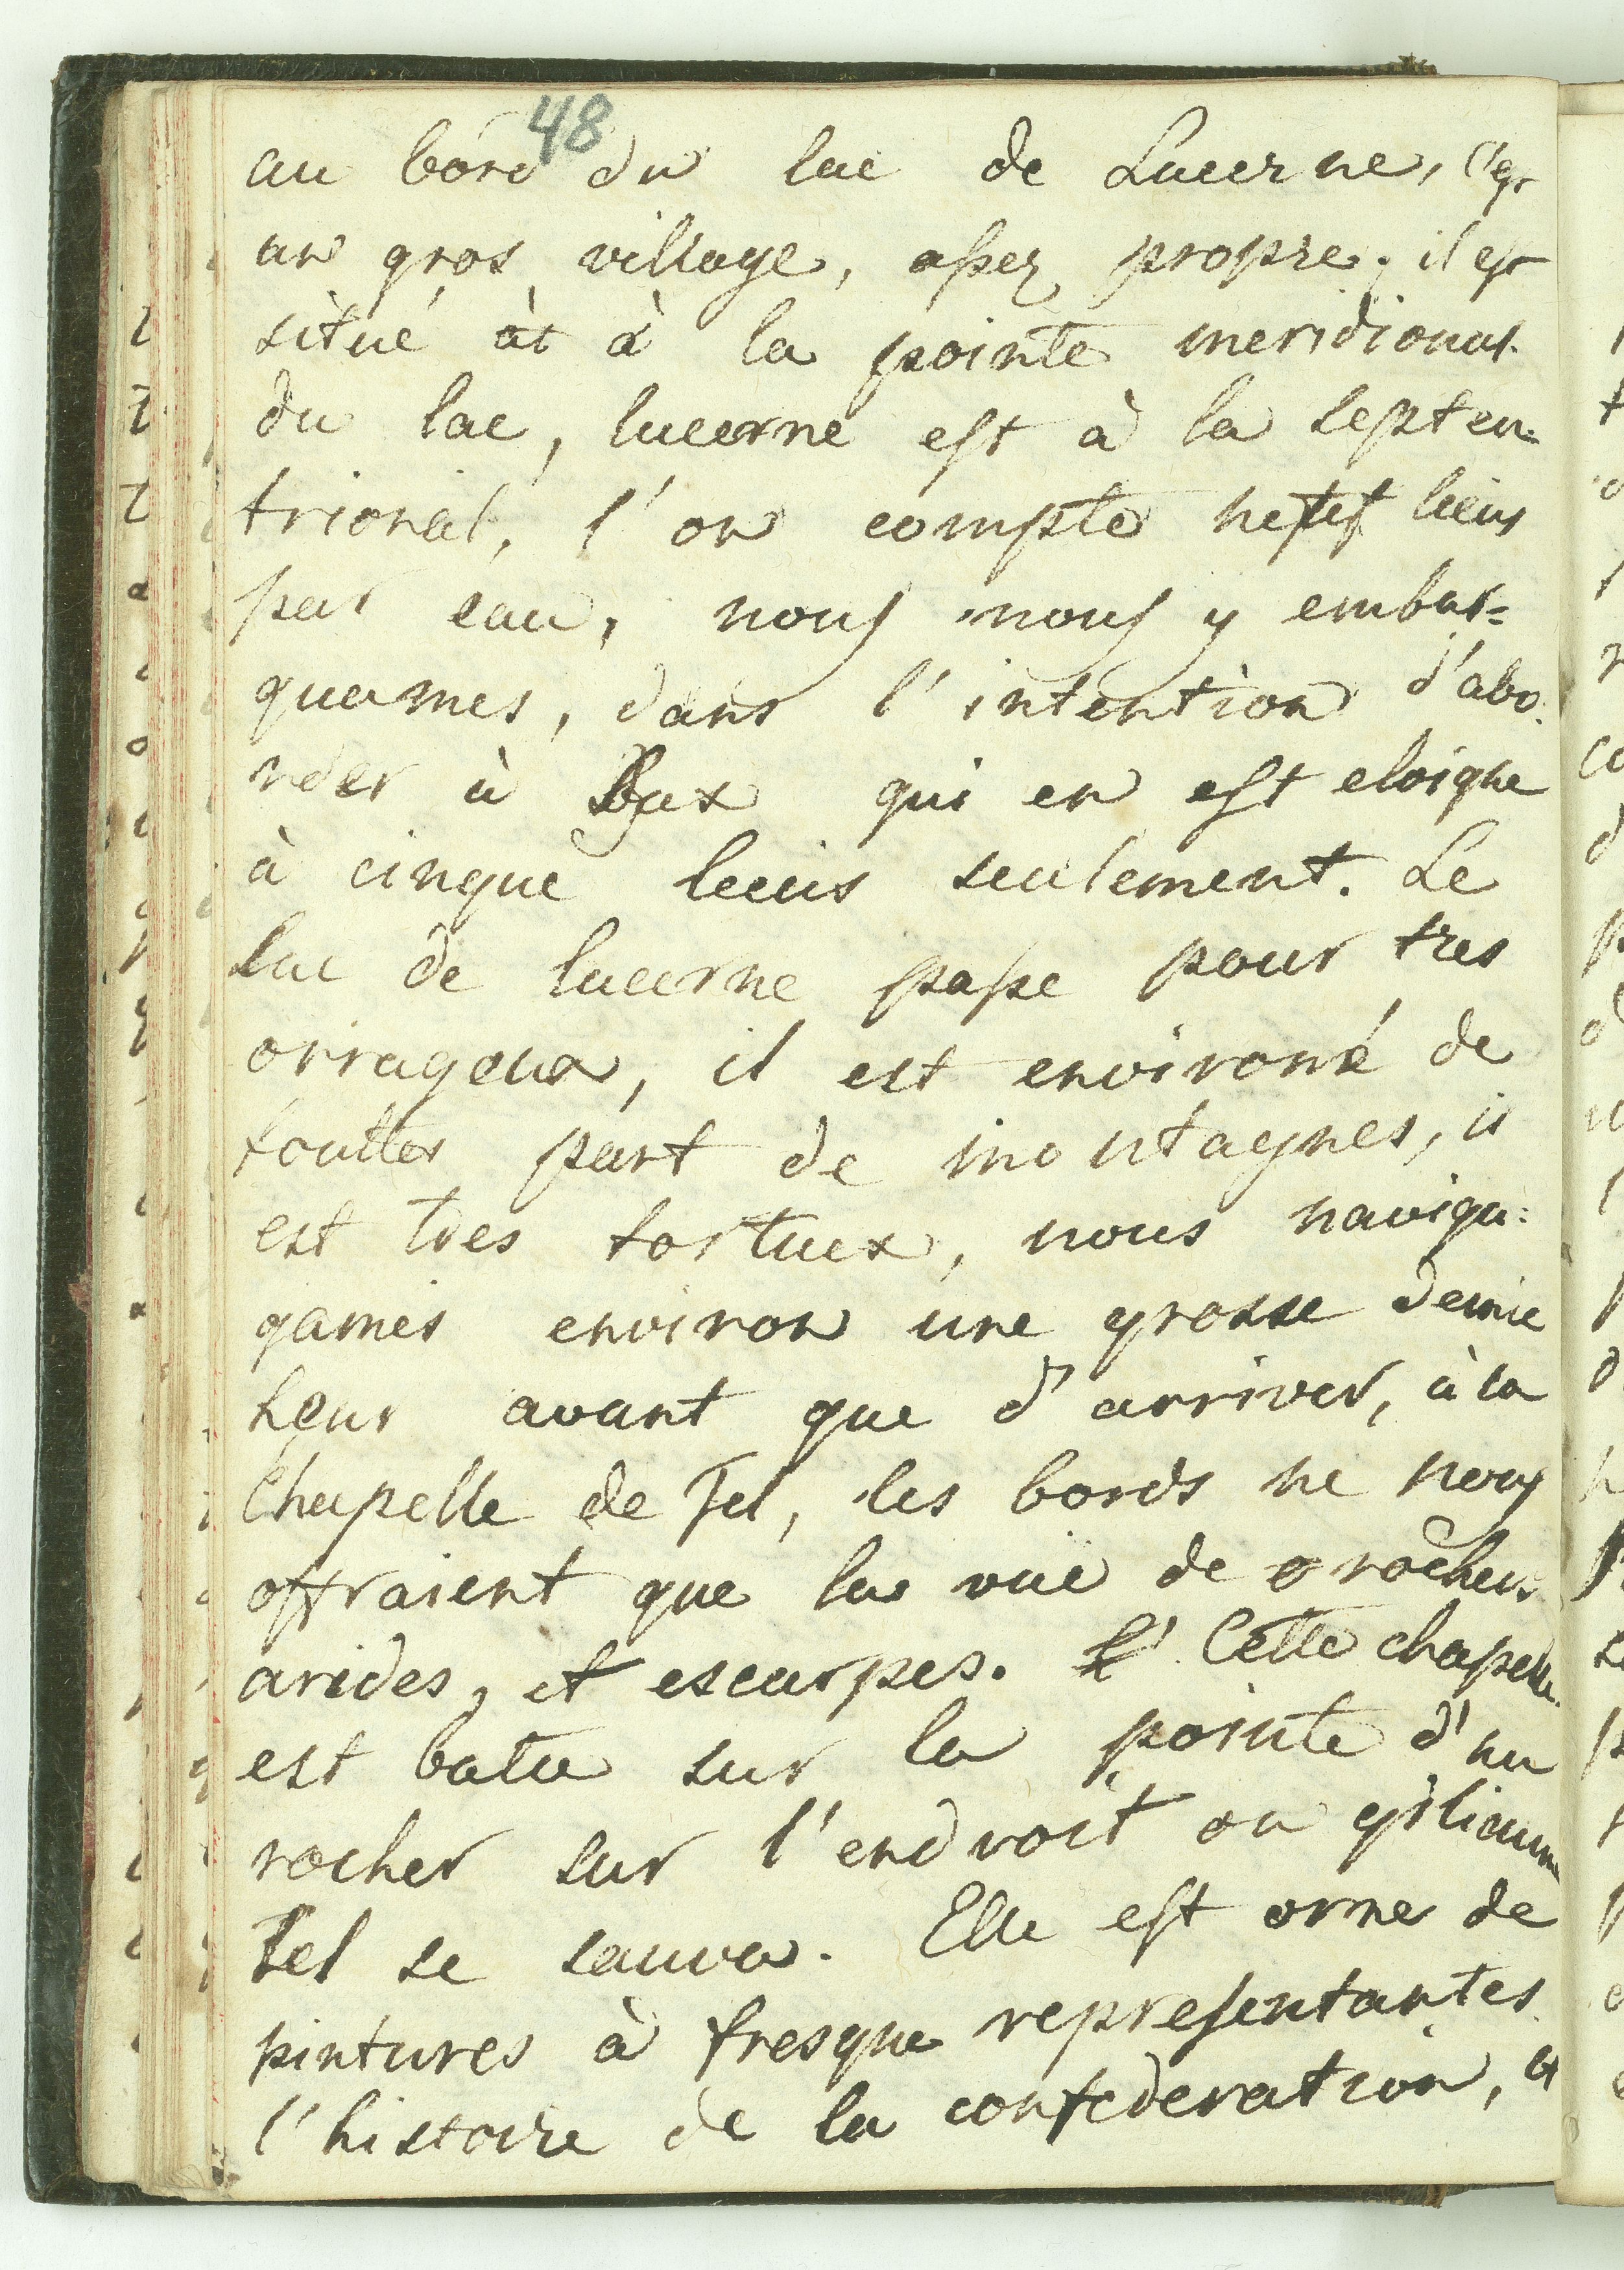 48
au bord du lac de Lucerne, c'est
un gros village, assez propre; il est
situé at à la pointe meridional
du lac, lucerne est à la septen=
trional, l'on compte neuf lieus
par eau, nous nous y embar=
quames, dans l'intention d'abo=
rder à qui en est eloigne
à cinque lieuis seulement. Le
lac de lucerne passe pour tres
orrageux, il est environé de
touttes part de montagnes, il
est tres tortuex, nous naviga=
games environ une grosse demie
heur avant que d'arriver, à la
Chapelle de Tel, les bords ne nous
offraient que la vuë de rochers
arides, et escarpes. L' Cette chapelle
est batie sur la pointe d'un
rocher sur l'endroit ou giliaume
Tel se sauva. Elle est orne de
pintures à fresque representantes
l'histoire de la confederation, et